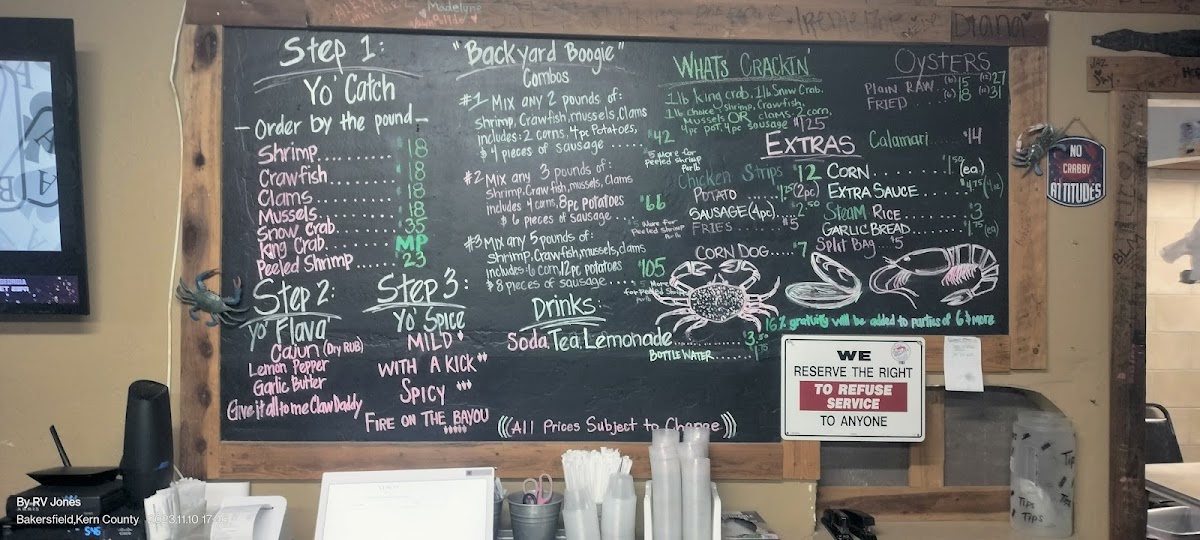 Madelyne
Diana
Step 1:
Yo' Catch
- Order by the pound -
Shrimp.......... 18
Crawfish........ 18
Clams........... 18
Mussels......... 18
Snow Crab....... 35
King Crab....... MP
Peeled Shrimp.... 23
Step 2:
Yo' Flava'
Cajun (Dry RUB)
Lemon Pepper
Garlic Butter
Give it all to me Claw Daddy
Step 3:
Yo' Spice
MILD *
WITH A KICK **
SPICY ***
FIRE ON THE BAYOU
*****
"Backyard Boogie"
Combos
#1 Mix any 2 pounds of:
shrimp, Crawfish, mussels, Clams
includes: 2 corns, 4pc Potatoes,
& 4 pieces of sausage ..... $42
$5 More for
peeled Shrimp
Per lb
#2 Mix any 3 pounds of:
Shrimp, Crawfish, mussels, Clams
includes 4 corns, 8pc potatoes
& 6 pieces of Sausage ..... $66
$5 More for
Peeled Shrimp
Per lb
#3 Mix any 5 pounds of:
shrimp, Crawfish, mussels, clams
includes 6 corn, 12pc potatoes
& 8 pieces of sausage..... $105
$5 More
for Peeled Shrimp
Per lb
Drinks:
Soda, Tea, Lemonade............ $3.50
BOTTLE WATER........
WHATS CRACKIN'
1 lb king crab, 1 lb Snow Crab,
1 lb choice, Shrimp, Crawfish,
Mussels OR clams 2 corn,
4pc pot, 4pc sausage $125
OYSTERS
PLAIN RAW (6) 15 (12) 27
FRIED.... (6) 18 (12) 31
EXTRAS
Calamari.... $14
Chicken Strips $12
POTATO $1.25 (2pc)
SAUSAGE (4pc).. $2.50
FRIES........ $5
CORN DOG..... $7
CORN............ $1.50 (ea)
EXTRA SAUCE.....
STEAM RICE...... $3
GARLIC BREAD..... $1.75 (ea)
Split Bag $5
16% gratuity will be added to parties of 6 & more
(((All Prices Subject to Change)))
NO
CRABBY
ATTITUDES
WE
RESERVE THE RIGHT
TO REFUSE
SERVICE
TO ANYONE
Tips
Tips
By RV Jones
Bakersfield, Kern County